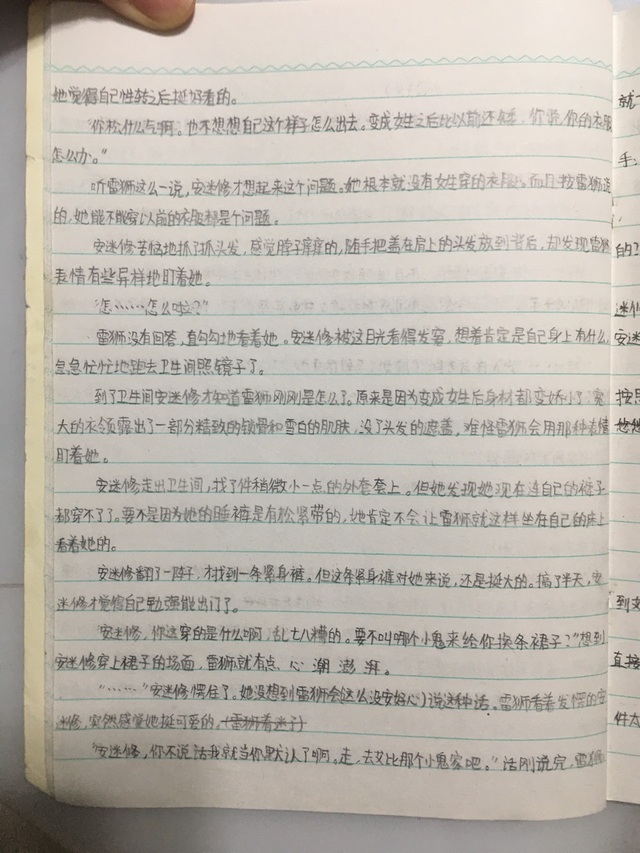 她觉得自己性转之后挺好看的。
"你松什么气啊。也不想想自己这个样子怎么出去。变成女生之后比以前还矮，你说，你的衣服
怎么办。"
听雷狮这么一说，安迷修才想起来这个问题。她根本就没有女生穿的衣服。而且按雷狮说
的，她能不能穿以前的衣服都是个问题。
安迷修苦恼地抓了抓头发，感觉脖子痒痒的，随手把盖在肩上的头发放到背后，却发现雷狮
表情有些异样地盯着她。
"怎……怎么啦？"
雷狮没有回答，直勾勾地看着她。安迷修被这目光看得发窘，想着肯定是自己身上有什么，
急急忙忙地跑去卫生间照镜子了。
到了卫生间安迷修才知道雷狮刚刚是怎么了。原来是因为变成女生后身材都变娇小了，宽
大的衣领露出了一部分精致的锁骨和雪白的肌肤，没了头发的遮盖，难怪雷狮会用那种表情
盯着她。
安迷修走出卫生间，找了件稍微小一点的外套套上。但她发现她现在连自己的裤子
都穿不了了。要不是因为她的睡裤是有松紧带的，她肯定不会让雷狮就这样坐在自己的床上
看着她的。
安迷修翻了一阵子，才找到一条紧身裤。但这条紧身裤对她来说，还是挺大的。搞了半天，安
迷修才觉得自己勉强能出门了。
"安迷修，你这穿的是什么啊，乱七八糟的。要不叫哪个小鬼来给你换条裙子？"想到
安迷修穿上裙子的场面，雷狮就有点 心潮澎湃。
"……"安迷修愣住了。她没想到雷狮会(这么没安好心)说这种话。雷狮看着发愣的安
迷修，突然感觉她挺可爱的。(雷狮着迷了)
"安迷修，你不说话我就当你默认了啊。走，去艾比那个小鬼家吧。"话刚说完，雷狮
就一
手
的？
迷修
安迷
按
到
直接
件大